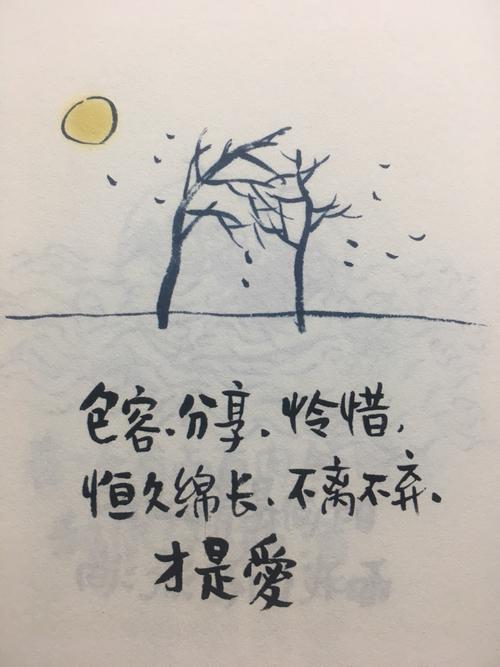 包容.分享.怜惜,
恒久绵长.不离不弃.
才是愛